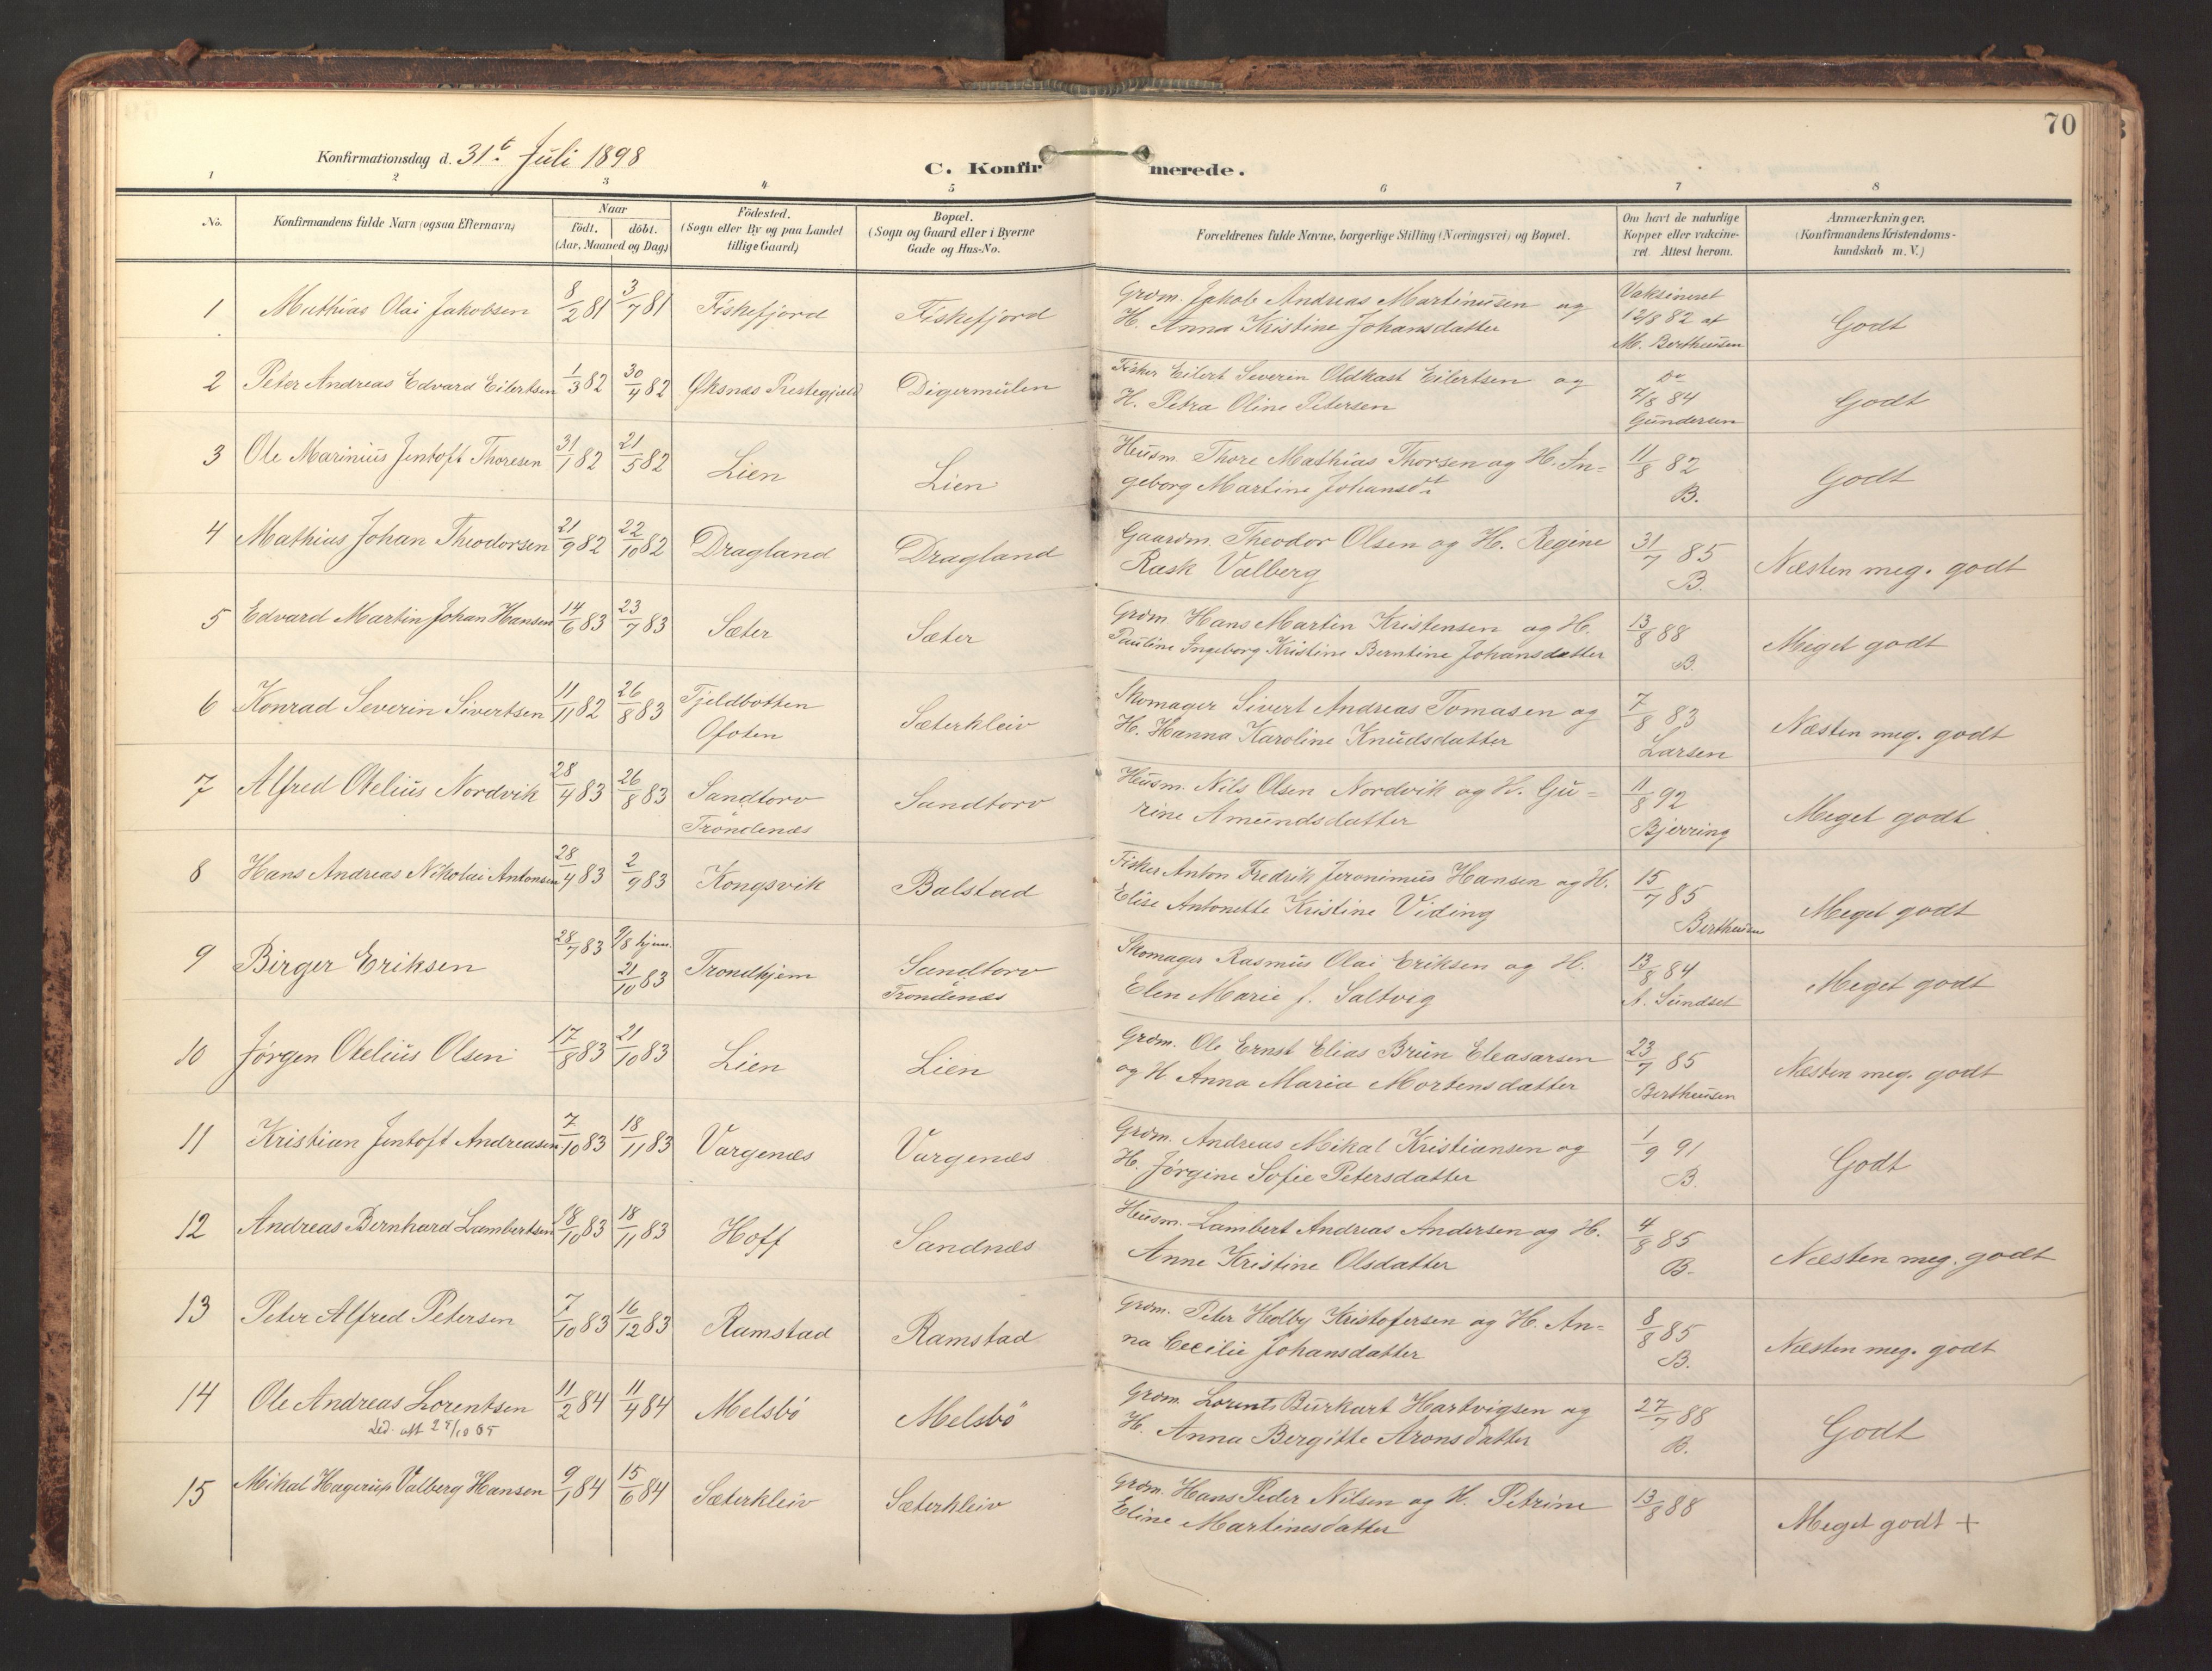 70
Konfirmationsdag d. 31t Juli 1898
C. Konfirmerede.
1 2 3 4 5 6 7 8
No. Konfirmandens fulde Navn (ogsaa Efternavn) Naar født. døbt. (Aar, Maaned og Dag) Födested. (Sogn eller By og paa Landet tillige Gaard) Bopæl. (Sogn og Gaard eller i Byerne Gade og Hus-No. Forældrenes fulde Navne, borgerlige Stilling (Næringsvei) og Bopæl. Om havt de naturlige Kopper eller vakcineret. Attest herom. Anmærkninger. (Konfirmandens Kristendomskundskab m. V.)
1 Mathias Olai Jakobsen 8/2 81 3/7 81 Fiskefjord Fiskefjord Grdm. Jakob Andreas Martinusen og
H. Anna Kristine Johansdatter Vaksineret 12/8 82 af M. Bertheusen Godt
2 Peter Andreas Edvard Eilertsen 1/3 82 30/4 82 Øksnæs Prestegjeld Digermulen Fisker Eilert Severin Oldkast Eilertsen og
H. Petra Oline Petersen Do 7/8 84 Gundersen Godt
3 Ole Marinius Jentoft Thoresen 31/1 82 21/5 82 Lien Lien Husm. Thore Mathias Thorsen og H. In=
geborg Martine Johansdt 11/8 82 B. Godt
4 Mathias Johan Theodorsen 21/9 82 22/10 82 Dragland Dragland Gaardm. Theodor Olsen og H. Regine
Rask Valberg 31/7 85 B. Næsten meg. godt
5 Edvard Martin Johan Hansen 14/6 83 23/7 83 Sæter Sæter Grdm. Hans Martin Kristensen og H.
Pauline Ingeborg Kristine Berntine Johansdatter 13/8 88 B. Meget godt
6 Konrad Severin Sivertsen 11/11 82 26/8 83 Fjeldbotten Ofoten Sæterkleiv Skomager Sivert Andreas Tomasen og
H. Hanna Karoline Knudsdatter 7/8 83 Larsen Næsten meg. godt
7 Alfred Otelius Nordvik 28/4 83 26/8 83 Sandtorv Trondenæs Sandtorv Husm. Nils Olsen Nordvik og H. Gu=
rine Amundsdatter 11/8 92 Bjerring Meget godt
8 Hans Andreas Nikolai Antonsen 28/4 83 2/9 83 Kongsvik Balstad Fisker Anton Fredrik Jeronimus Hansen og H.
Elise Antonette Kristine Viding 15/7 85 Bertheusen Meget godt
9 Birger Eriksen 28/7 83 9/8 hjem. 21/10 83 Trondhjem Sandtorv Trondenæs Skomager Rasmus Olai Eriksen og H.
Elen Marie f. Saltvig 13/8 84 A. Sundset Meget godt
10 Jørgen Otelius Olsen 17/8 83 21/10 83 Lien Lien Grdm. Ole Ernst Elias Brun Eleasarsen
og H. Anna Maria Mortensdatter 23/7 85 Bertheusen Næsten meg. godt
11 Kristian Jentoft Andreasen 7/10 83 18/11 83 Vargenæs Vargenæs Grdm. Andreas Mikal Kristiansen og
H. Jørgine Sofie Petersdatter 1/9 91 B. Godt
12 Andreas Bernhard Lambertsen 18/10 83 18/11 83 Hoff Sandnæs Husm. Lambert Andreas Andersen og H.
Anne Kristine Olsdatter 4/8 85 B. Næsten meg. godt
13 Peter Alfred Petersen 7/10 83 16/12 83 Ramstad Ramstad Grdm. Peter Holby Kristofersen og H. An=
na Cecilie Johansdatter 8/8 85 B. Næsten meg. godt
14 Ole Andreas Lorentsen 11/2 84 11/4 84 Melsbö Melsbö Grdm. Lorents Burkart Hartvigsen og
H. Anna Bergitte Aronsdatter 27/7 88 B. Godt
15 Mikal Hagerup Valberg Hansen 9/1 84 15/6 84 Sæterkleiv Sæterkleiv Grdm. Hans Peder Nilsen og H. Petrine
Eline Martinesdatter 13/8 88 Meget godt +